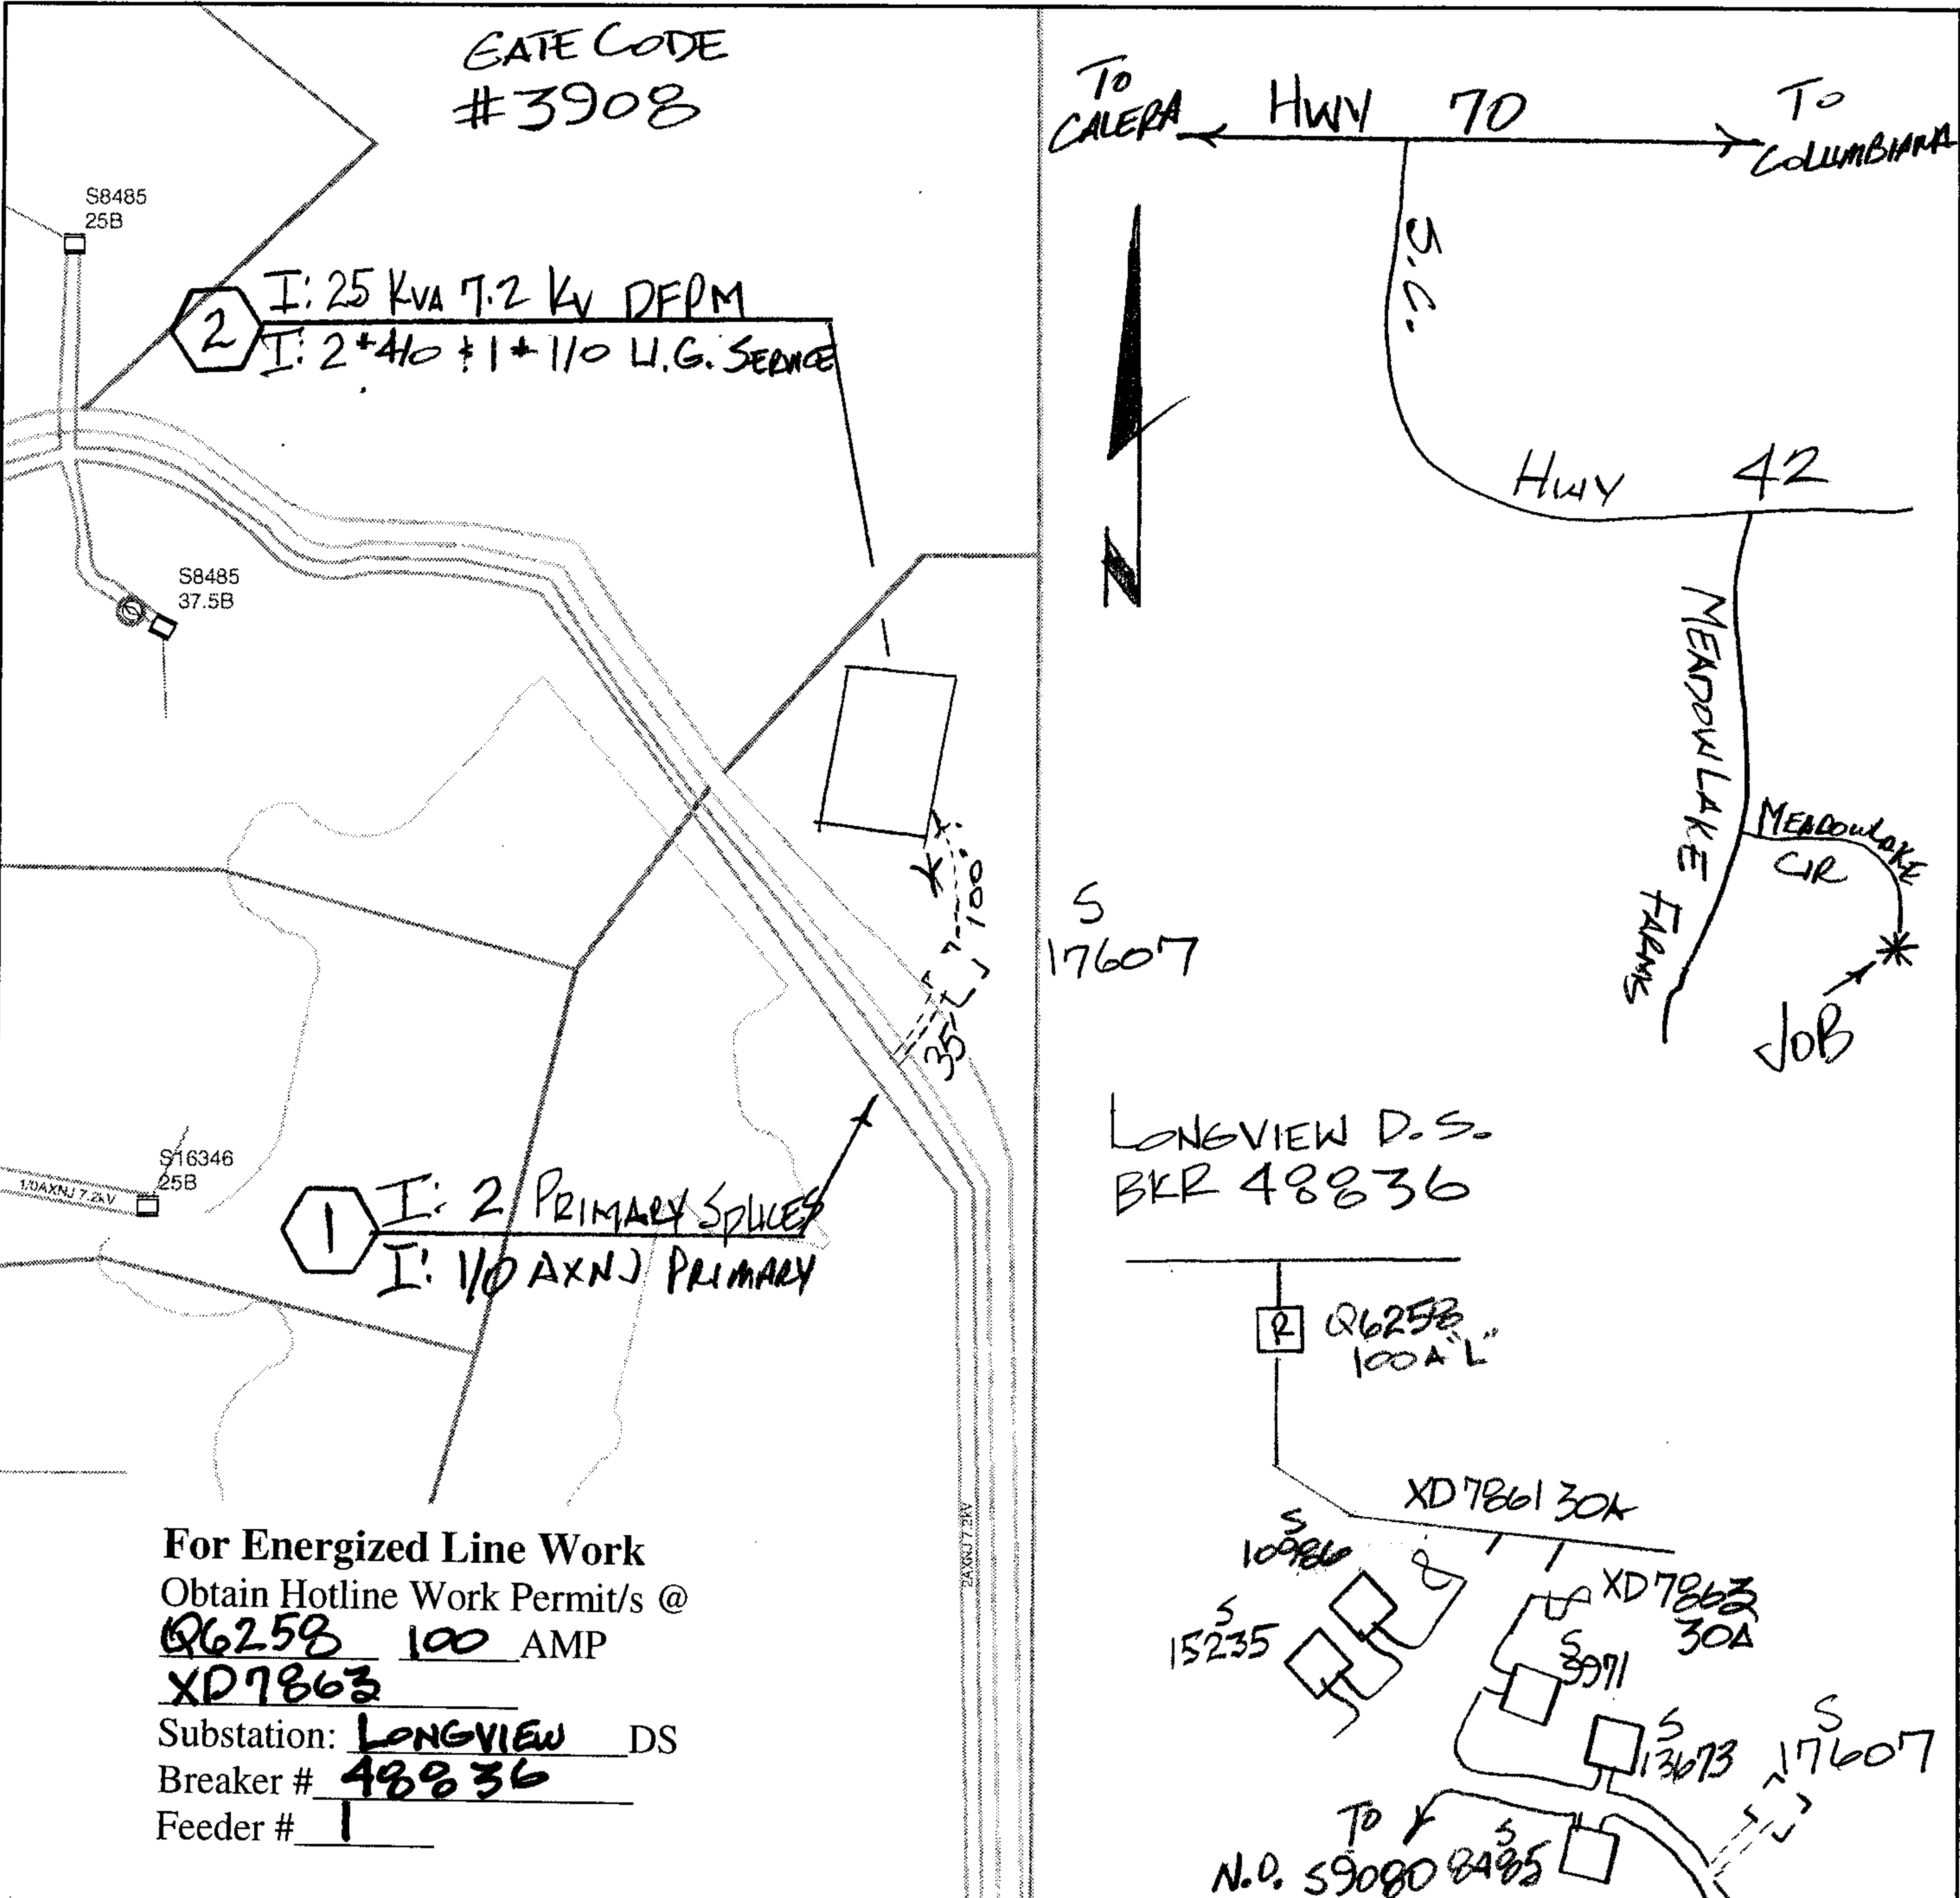 GATE CODE
#3908
S8485
25B
2
I: 25 KVA 7.2 KV DFPM
I: 2#4/0 & 1#1/0 U.G. SERVICE
S8485
37.5B
100'
35'
S
17607
S16346
25B
1/0AXNJ 7.2kV
1
I: 2 PRIMARY SPLICES
I: 1/0 AXNJ PRIMARY
2AXNJ 7.2kV
For Energized Line Work
Obtain Hotline Work Permit/s @
Q6258 100 AMP
XD7863
Substation: LONGVIEW DS
Breaker # 48836
Feeder # 1
TO CALERA
HWY 70
TO COLUMBIANA
S.C.
N
HWY 42
MEADOWLAKE FARMS
MEADOWLAKE
CIR
JOB
LONGVIEW D.S.
BKR 48836
R
Q6258
100A "L"
XD7861 30A
S
10986
S
15235
XD7863
30A
S
3971
S
13673
S
17607
TO
N.O. S9080
S
8485